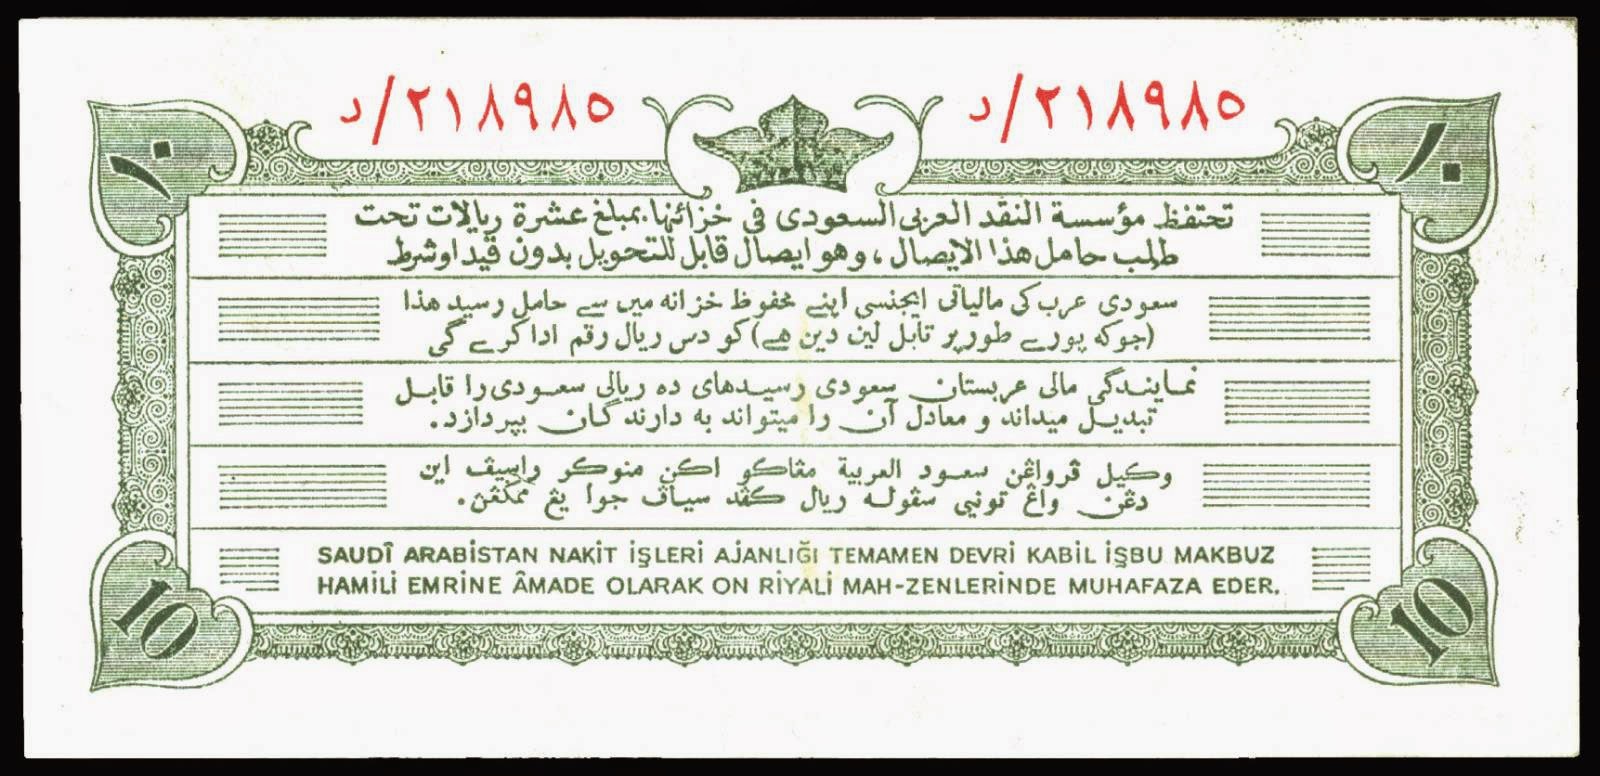 د/٢١٨٩٨٥
د/٢١٨٩٨٥
١٠
١٠
تحتفظ مؤسسة النقد العربى السعودى فى خزائنها بمبلغ عشرة ريالات تحت
طلب حامل هذا الايصال، وهو ايصال قابل للتحويل بدون قيد اوشرط
سعودی عرب کی مالیاتی ایجنسی اپنے محفوظ خزانه میں سے حامل رسید هذا
(جوکه پورے طور پر قابل لین دین هے) کو دس ریال رقم ادا کرے گی
نمایندگی مالی عربستان سعودی رسیدهای ده ریالی سعودی را قابل
تبدیل میداند و معادل آن را میتواند به دارندگان بپردازد.
وكيل ڤرواڠن سعود العربية مڠاكو اكن منوكر راسيڤ اين
دڠن واڠ تونيى سڤوله ريال كڤد سياڤ جوا يڠ ممڬڠن.
SAUDÎ ARABİSTAN NAKİT İŞLERİ AJANLIĞI TEMAMEN DEVRİ KABİL İŞBU MAKBUZ
HAMİLİ EMRİNE ÂMADE OLARAK ON RİYALİ MAH-ZENLERİNDE MUHAFAZA EDER.
10
10